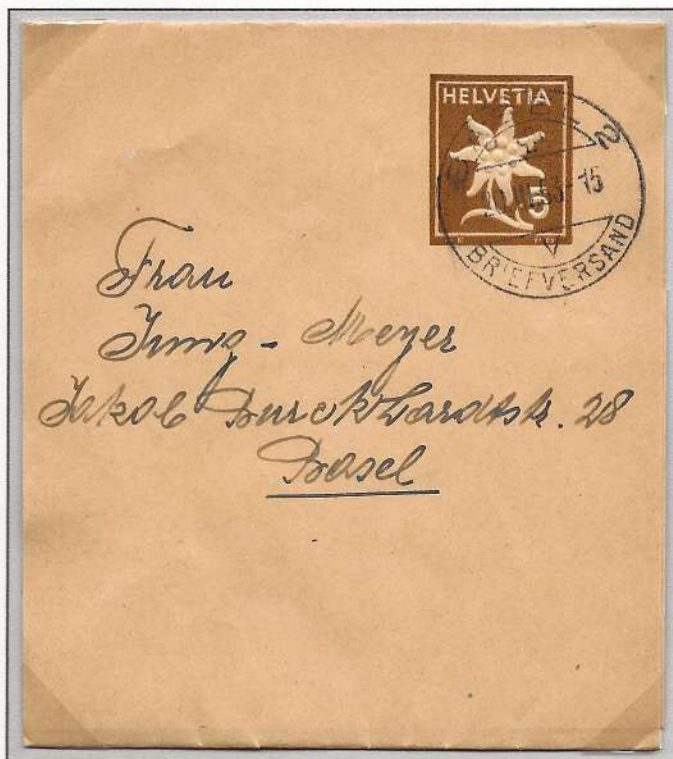 HELVETIA
5
2
15
BRIEFVERSAND
Frau
Meyer
Jakob Burckhardtstr. 28
Basel